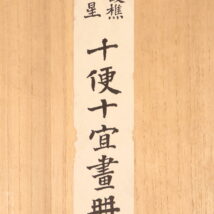 樵
星
十便十宜畫冊